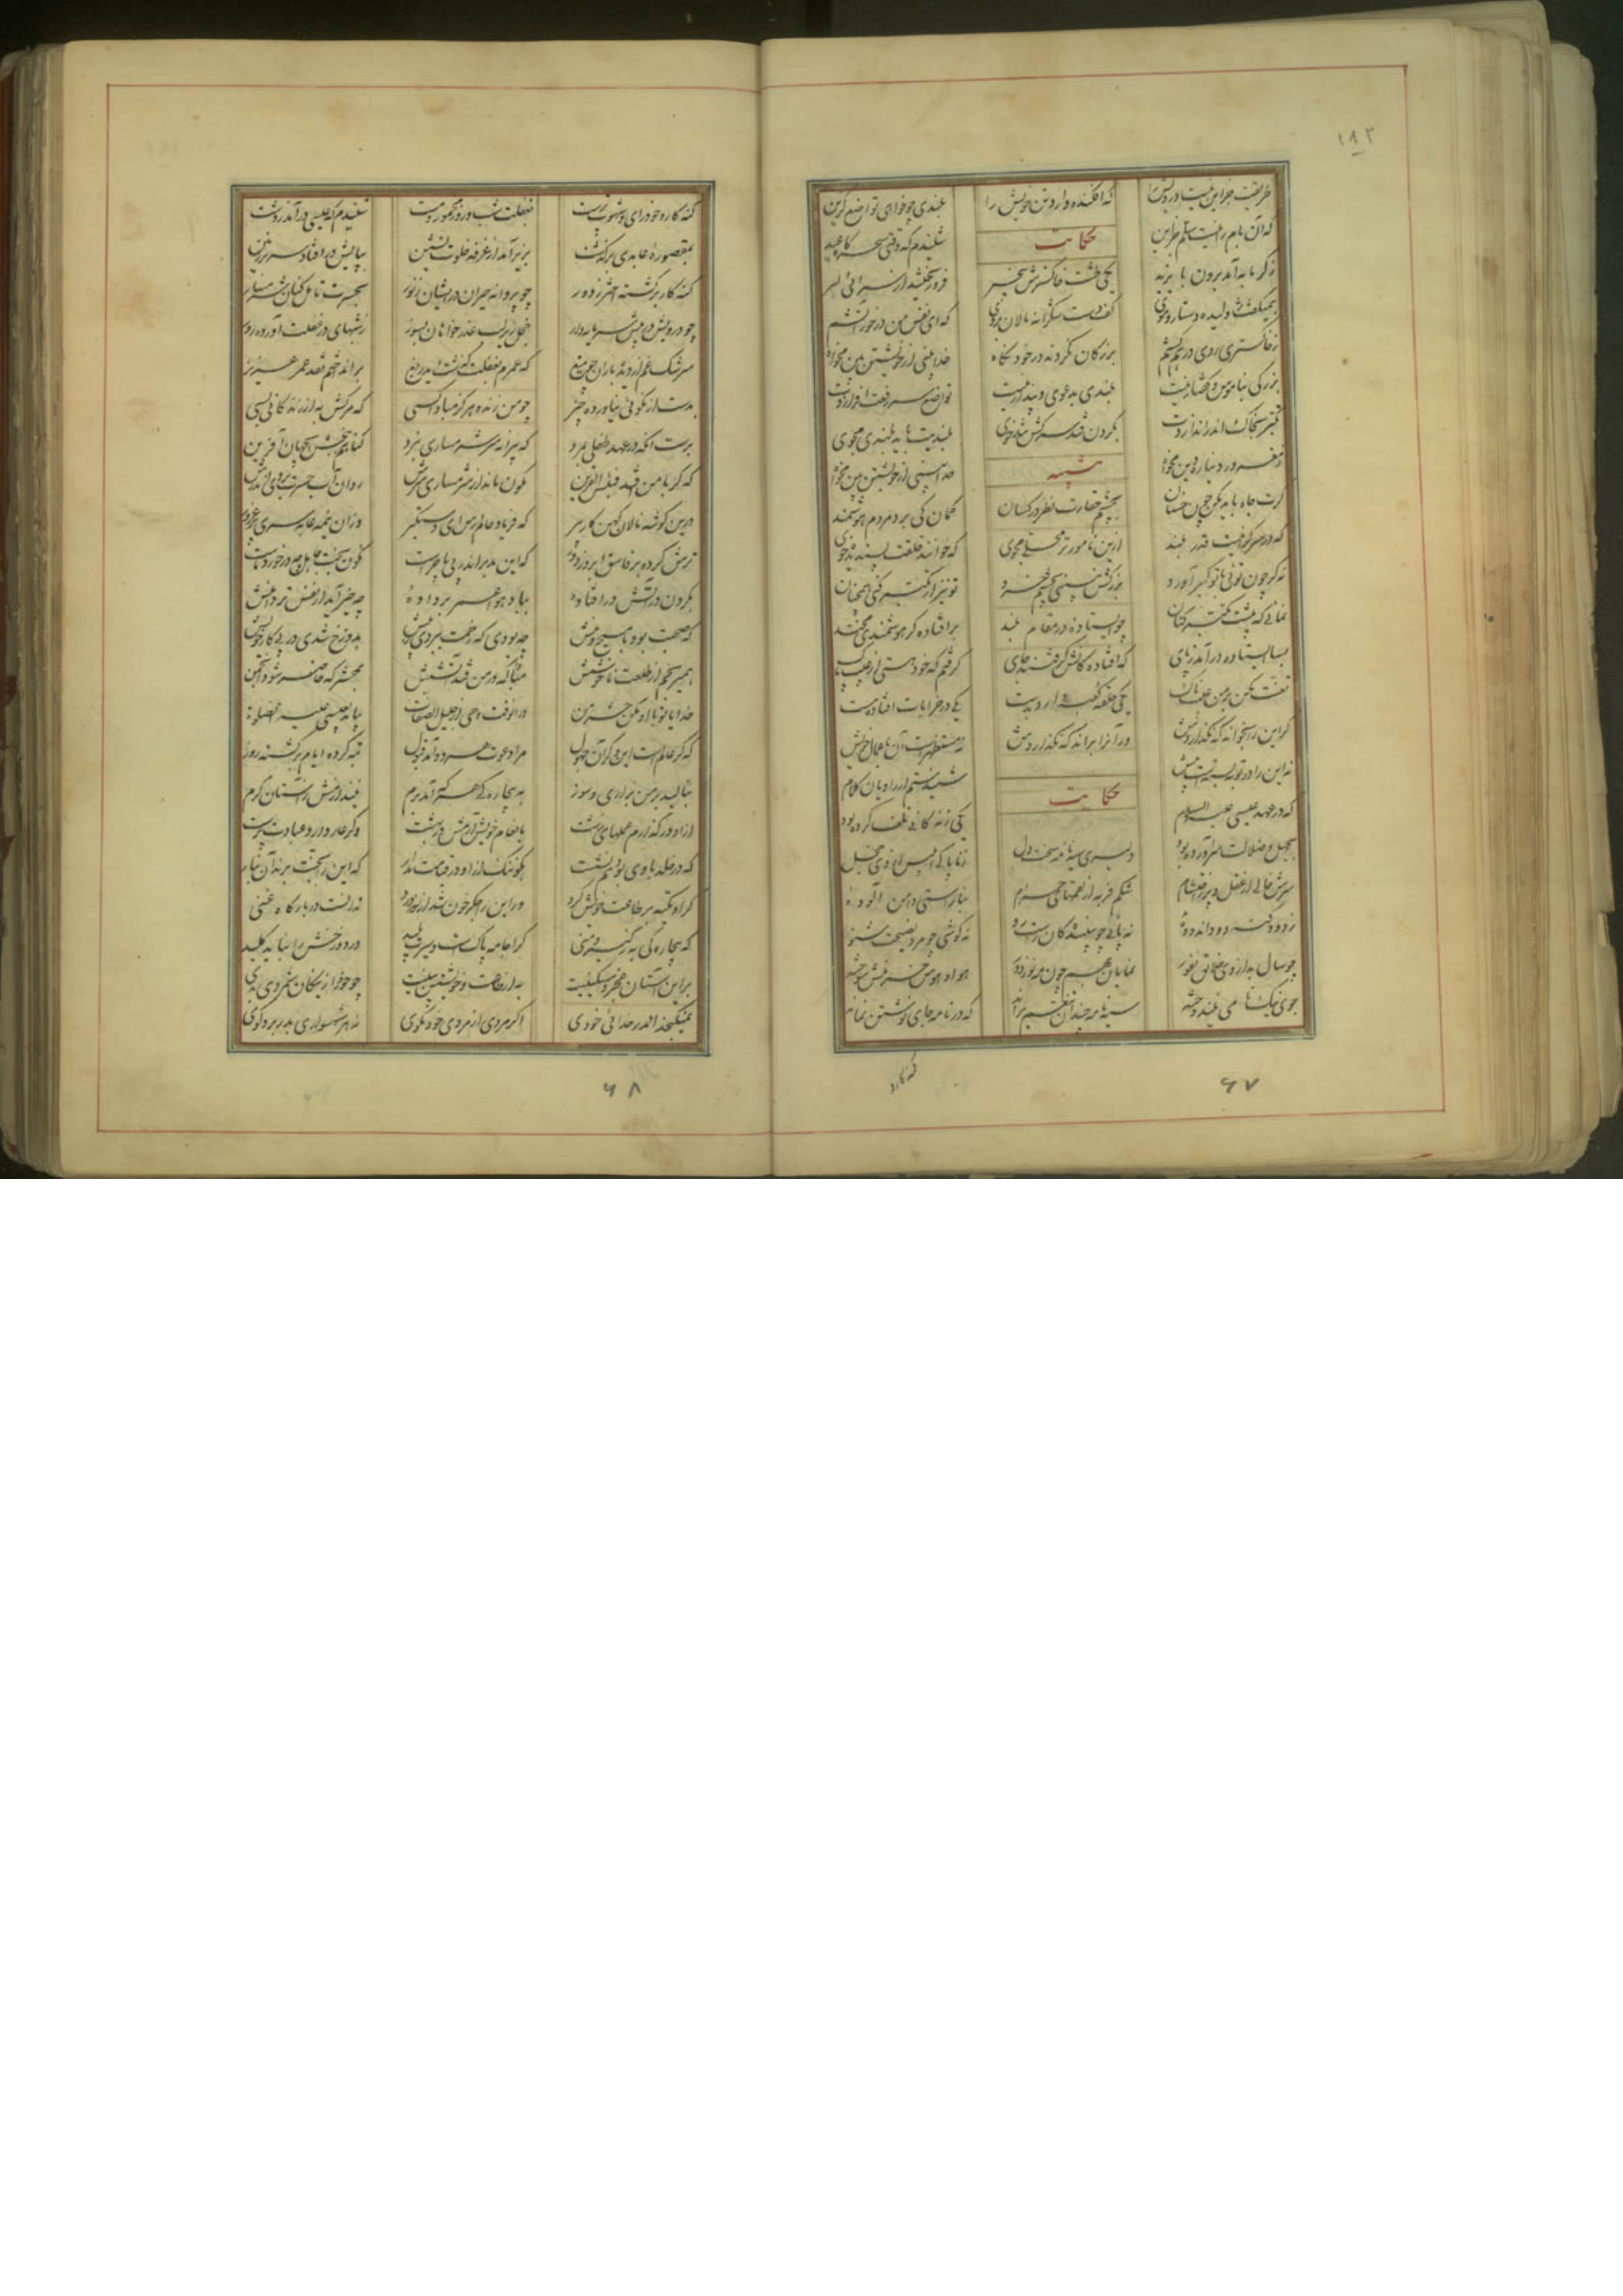 طریقت جزاین نیست درویش را
که افکنده دارد تن خویش را
بلندی چو خواهی تواضع گزین
که آن بام را نیست سلم جز این
حکایت
شنیدم که وقتی سحرگاه عید
ز گرمابه آمد برون با یزید
یکی طشت خاکسترش بیخبر
فرو ریختند از سرائی بسر
همیگفت ژولیده دستار و موی
کف دست شکرانه مالان بروی
که ای نفس من درخور آتشم
ز خاکستری روی درهم کشم
بزرگان نکردند در خود نگاه
خدا بینی از خویشتن بین مخواه
بزرگی بناموس و گفتار نیست
بلندی بدعوی و پندار نیست
تواضع سر رفعت افرازدت
تکبر بخاک اندر اندازدت
بگردن فتد سرکش تندخوی
بلندیت باید بلندی مجوی
ز مغرور دنیا ره دین مخواه
خدا بینی از خویشتن بین مخواه
گرت جاه باید مکن چون خسان
بچشم حقارت نظر در کسان
گمان کی برد مردم هوشمند
که در سرگرانیست قدر بلند
ازین نامورتر محلی مجوی
که خوانند خلقت پسندیده خوی
نه گر چون توئی با تو کبر آورد
بزرگش نبینی بچشم خرد
تو نیز ار تکبر کنی همچنان
نمائی که پیشت تکبر کنان
چو ایستاده در مقام بلند
بر افتاده گر هوشمندی مخند
بسا ایستاده درآمد ز پای
که افتادگانش گرفتند جای
گرفتم که خود هستی از عیب پاک
تعنت مکن بر من عیبناک
یکی حلقه کعبه دارد بدست
یکی در خرابات افتاده مست
گر این را بخواند که نگذاردش
ور آنرا براند که نگذاردش
نه مستظهرست آن باعمال خویش
نه این را در توبه بستست پیش
حکایت
شنیدستم از راویان کلام
که در عهد عیسی علیه السلام
یکی زندگانی تلف کرده بود
بجهل و ضلالت سرآورده بود
دلیری سیه نامه سخت دل
ز ناپاکی ابلیس از وی خجل
سرش خالی از عقل و پر ز احتشام
شکم فربه از لقمهای حرام
بناراستی دامن آلوده
نه پائی چو بینندگان راست رو
نه گوشی چو مردم نصیحت شنو
چو سال بد از وی خلایق نفور
نمایان بهم چون مه نو ز دور
هوا و هوس خرمنش سوخته
جوی نیک نامی نیندوخته
سیه نامه چندان تنعم براند
که در نامه جای نوشتن نماند
۶۷
گنه کار و خودرای و شهوت پرست
بغفلت شب و روز مخمور و مست
شنیدم که عیسی درآمد ز دشت
بمقصوره عابدی برگذشت
بزیر آمد از غرفه خلوت نشین
بپایش در افتاد سر بر زمین
گنه کار برگشته اختر ز دور
چو پروانه حیران در ایشان ز نور
بحسرت تامل کنان شرمسار
چو درویش در پیش سرمایه دار
خجل زیر لب عذرخواهان بسوز
ز شبهای در غفلت آورده روز
سرشک غم از دیده باران چو میغ
که عمرم بغفلت گذشت ای دریغ
برانداختم نقد عمر عزیز
بدست از نکوئی نیاورده چیز
چو من زنده هرگز مبادا کسی
که مرگش به از زندگانی بسی
برست آنکه در عهد طفلی بمرد
که پیرانه سر شرمساری نبرد
گناهم ببخش ای جهان آفرین
که گر با من آید فبئس القرین
نگون مانده از شرمساری سرش
روان آب حسرت بروی اندرش
درین گوشه نالان گنهکار پیر
که فریاد حالم رس ای دستگیر
وزان نیمه عابد سری پر غرور
ترش کرده بر فاسق ابرو ز دور
که این مدبر اندر پی ما چراست
نگون بخت جاهل چه درخورد ماست
بگردن در آتش در افتاده
بباد هوا عمر برداده
چه خیر آمد از نفس تر دامنش
که صحبت بود با مسیح و منش
چه بودی که زحمت ببردی ز پیش
بدوزخ شدی در پی کار خویش
همیرنجم از طلعت ناخوشش
مبادا که در من فتد آتشش
بمحشر که حاضر شود انجمن
خدایا تو با او مکن حشر من
بیامد بعیسی علیه الصلوة
که گر عالمست این و گر آن جهول
مرا دعوت هر دو آمد قبول
تبه کرده ایام برگشته روز
بنالید بر من بزاری و سوز
به بیچارگی هر که آمد برم
نیندازمش ز آستان کرم
ازو در گذارم عملهای زشت
بانعام خویش آرمش در بهشت
وگر عار دارد عبادت پرست
که در خلد با وی بود هم نشست
بگو ننگ ازو در قیامت مدار
که این را بجنت برند آن بنار
که آنرا جگر خون شد از سوز و درد
گر او تکیه بر طاعت خویش کرد
ندانست در بارگاه غنی
که بیچارگی به ز کبر و منی
کرا جامه پاکست و سیرت پلید
در دوزخش را نباید کلید
برین آستان عجز و مسکینیت
به از طاعت و خویشتن بینیت
چو خود را ز نیکان شمردی بدی
نمیگنجد اندر خدائی خودی
اگر مردی از مردی خود مگوی
نه هر شهسواری بدر برد گوی
۶۸